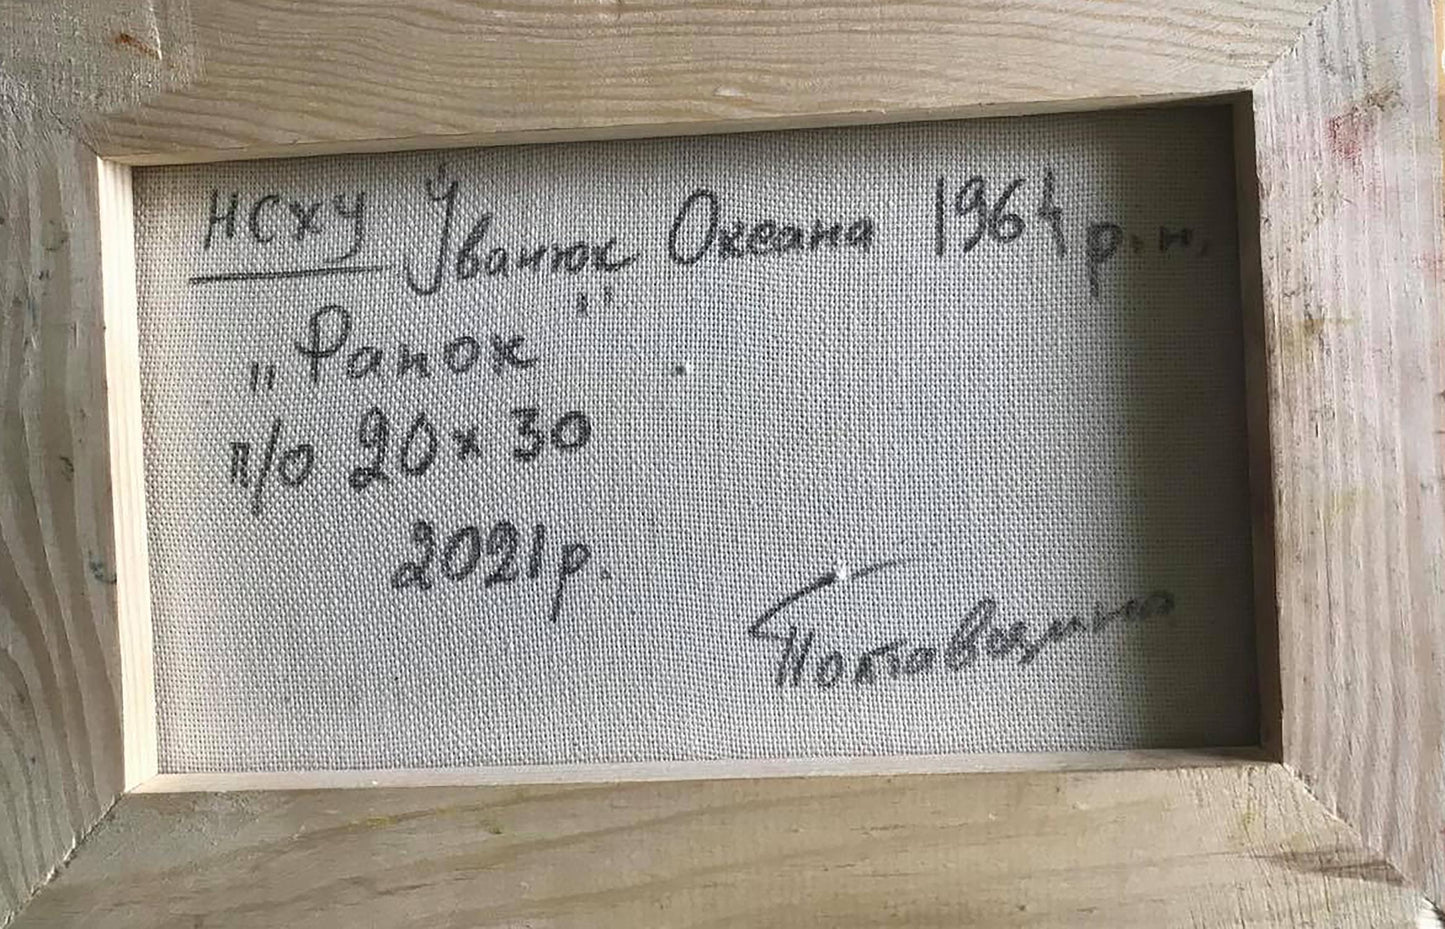 НСХУ Іванюк Оксана 1964 р.н.
„Ранок"
п/о 20х30
2021р.
Полтавщина